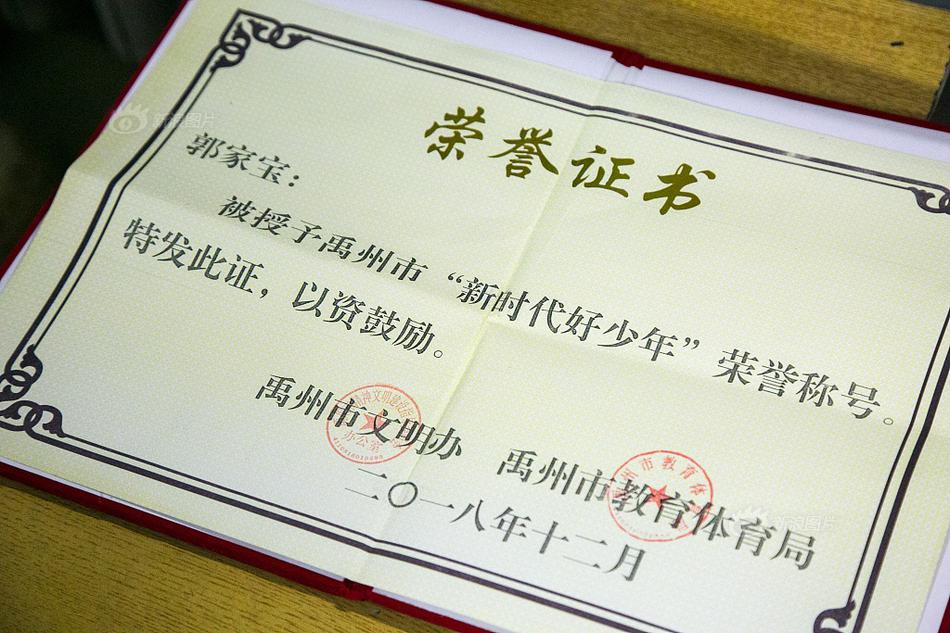 荣誉证书
郭家宝：
被授予禹州市“新时代好少年”荣誉称号。
特发此证，以资鼓励。
禹州市文明办 禹州市教育体育局
二〇一八年十二月
办公室